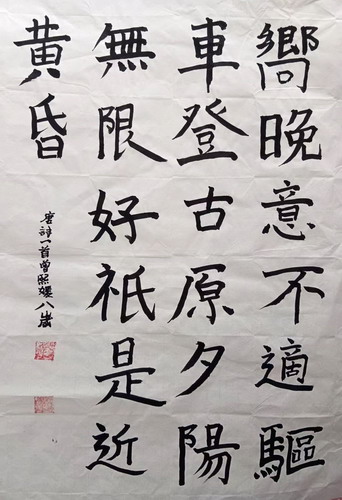 嚮晚意不適驅
車登古原夕陽
無限好祇是近
黄昏
唐詩一首曾熙媛八歲